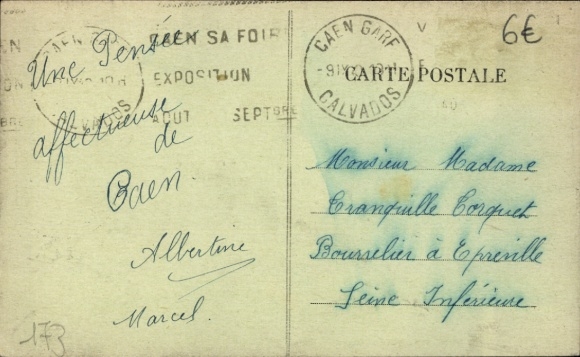 Une Pensée
affectueuse
de
Caen.
Albertine
Marcel.
173
CAEN SA FOIRE
EXPOSITION
AOUT SEPTBRE
CAEN GARE
CALVADOS
6€
CARTE POSTALE
Monsieur Madame
Tranquille Corquet
Bourrelier à Epreville
Seine Inférieure